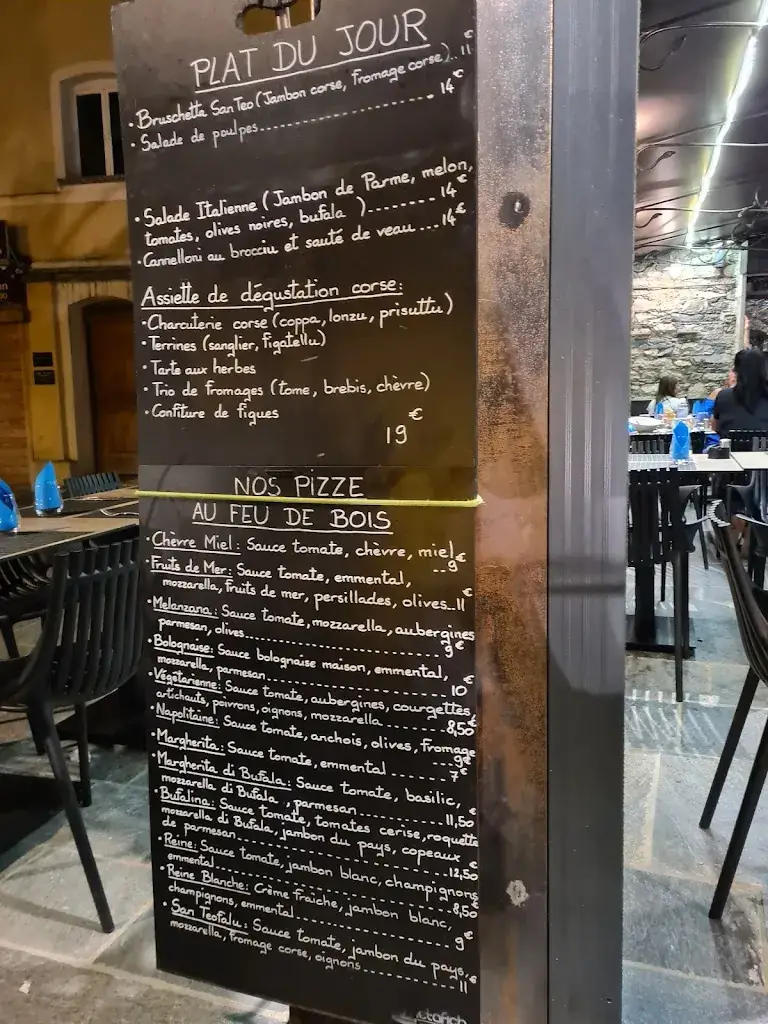 PLAT DU JOUR
• Bruschetta San Teo (Jambon corse, fromage corse)..11€
• Salade de poulpes........................ 14€
• Salade Italienne (Jambon de Parme, melon,
tomates, olives noires, bufala )........ 14€
• Cannelloni au brocciu et sauté de veau ... 14€
Assiette de dégustation corse:
• Charcuterie corse (coppa, lonzu, prisuttu)
• Terrines (sanglier, figatellu)
• Tarte aux herbes
• Trio de fromages (tome, brebis, chèvre)
• Confiture de figues
19€
NOS PIZZE
AU FEU DE BOIS
• Chèvre Miel: Sauce tomate, chèvre, miel..9€
• Fruits de Mer: Sauce tomate, emmental,
mozzarella, fruits de mer, persillades, olives..11€
• Melanzana: Sauce tomate, mozzarella, aubergines
parmesan, olives.............................. 9€
• Bolognaise: Sauce bolognaise maison, emmental,
mozzarella, parmesan........................... 10€
• Végétarienne: Sauce tomate, aubergines, courgettes,
artichauts, poivrons, oignons, mozzarella ........ 8,50€
• Napolitaine: Sauce tomate, anchois, olives, fromage
..9€
• Margherita: Sauce tomate, emmental ....... 7€
• Margherita di Bufala: Sauce tomate, basilic,
mozzarella di Bufala, parmesan.............. 11,50€
• Bufalina: Sauce tomate, tomates cerise, roquette
mozzarella di Bufala, jambon du pays, copeaux
de parmesan.............................. 12,50€
• Reine: Sauce tomate, jambon blanc, champignons
emmental................................ 8,50€
• Reine Blanche: Crème fraîche, jambon blanc,
champignons, emmental.................... 9€
• San Teofalu: Sauce tomate, jambon du pays,
mozzarella, fromage corse, oignons............ 11€